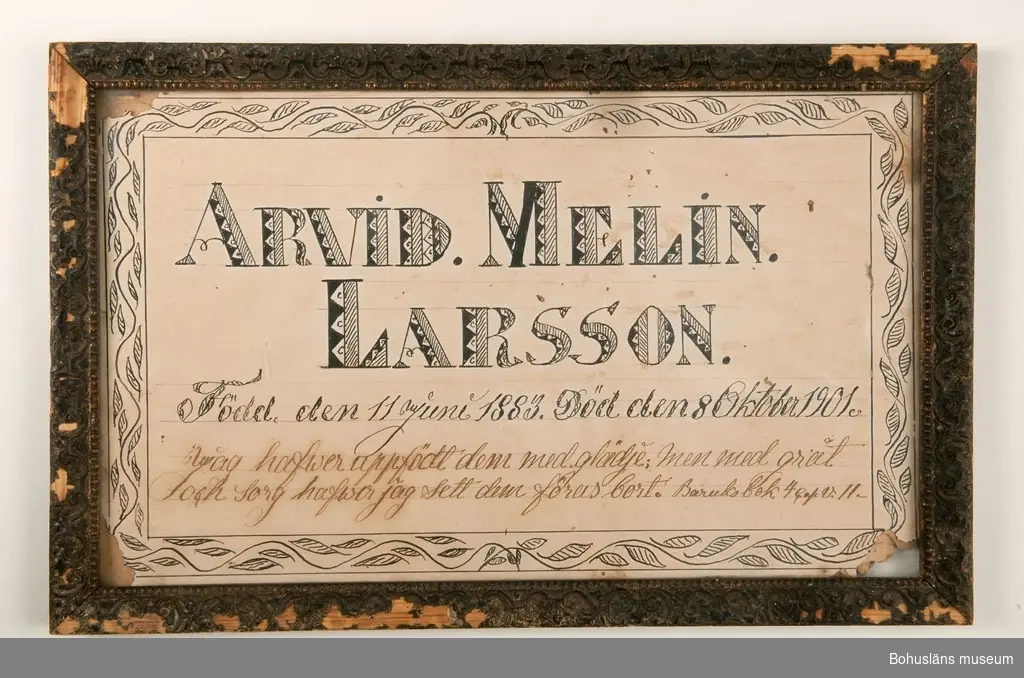 ARVID. MELIN.
LARSSON.
Född. den 11 Juni 1883. Död den 8 Oktober 1901.
Jag hafwer uppfödt dem med glädje; men med gråt
och sorg hafwer jag sett dem föras bort. Baruks bok 4 Cap. V: 11.
Bohusläns museum